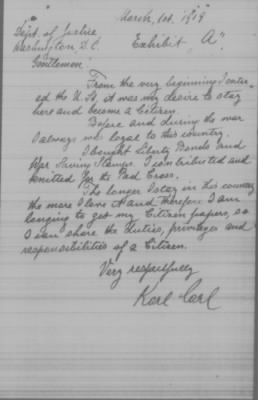 March, 1st. 1919
Dept. of Justice
Washington D.C.
Exhibit "A"
Gentlemen:
From the very beginning I enter-
ed the U.St. it was my desire to stay
here and become a Citizen.
Before and during the war
I always was loyal to this country.
I bought Liberty Bonds and
War Saving Stamps. I contributed and
knitted for the Red Cross.
The longer I stay in this country
the more I love it and therefore I am
longing to get my Citizen papers, so
I can share the duties, privileges and
responsibilities of a Citizen.
Very respectfully
Karl Carl